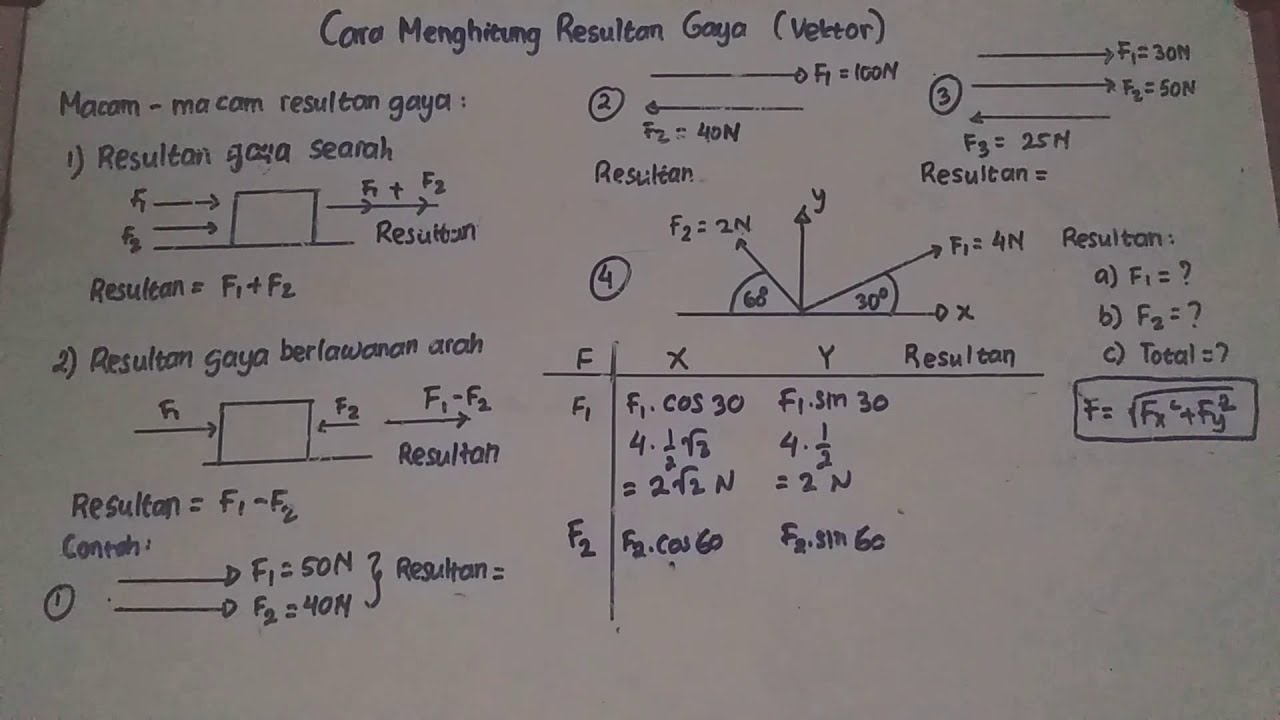 Cara Menghitung Resultan Gaya (Vektor)
Macam - macam resultan gaya :
1) Resultan gaya searah
F1
F2
F1 + F2
Resultan
Resultan = F1 + F2
2) Resultan gaya berlawanan arah
F1
F2
F1 - F2
Resultan
Resultan = F1 - F2
Contoh :
1
F1 = 50N
F2 = 40N
Resultan =
2
F1 = 100N
F2 = 40N
Resultan
3
F1 = 30N
F2 = 50N
F3 = 25N
Resultan =
4
y
F2 = 2N
F1 = 4N
60
30°
x
Resultan :
a) F1 = ?
b) F2 = ?
c) Total = ?
F = √Fx² + Fy²
F X Y Resultan
F1 F1 . cos 30 F1 . sin 30
4 . 1/2 √2 4 . 1/2
= 2√2 N = 2 N
F2 F2 . cos 60 F2 . sin 60